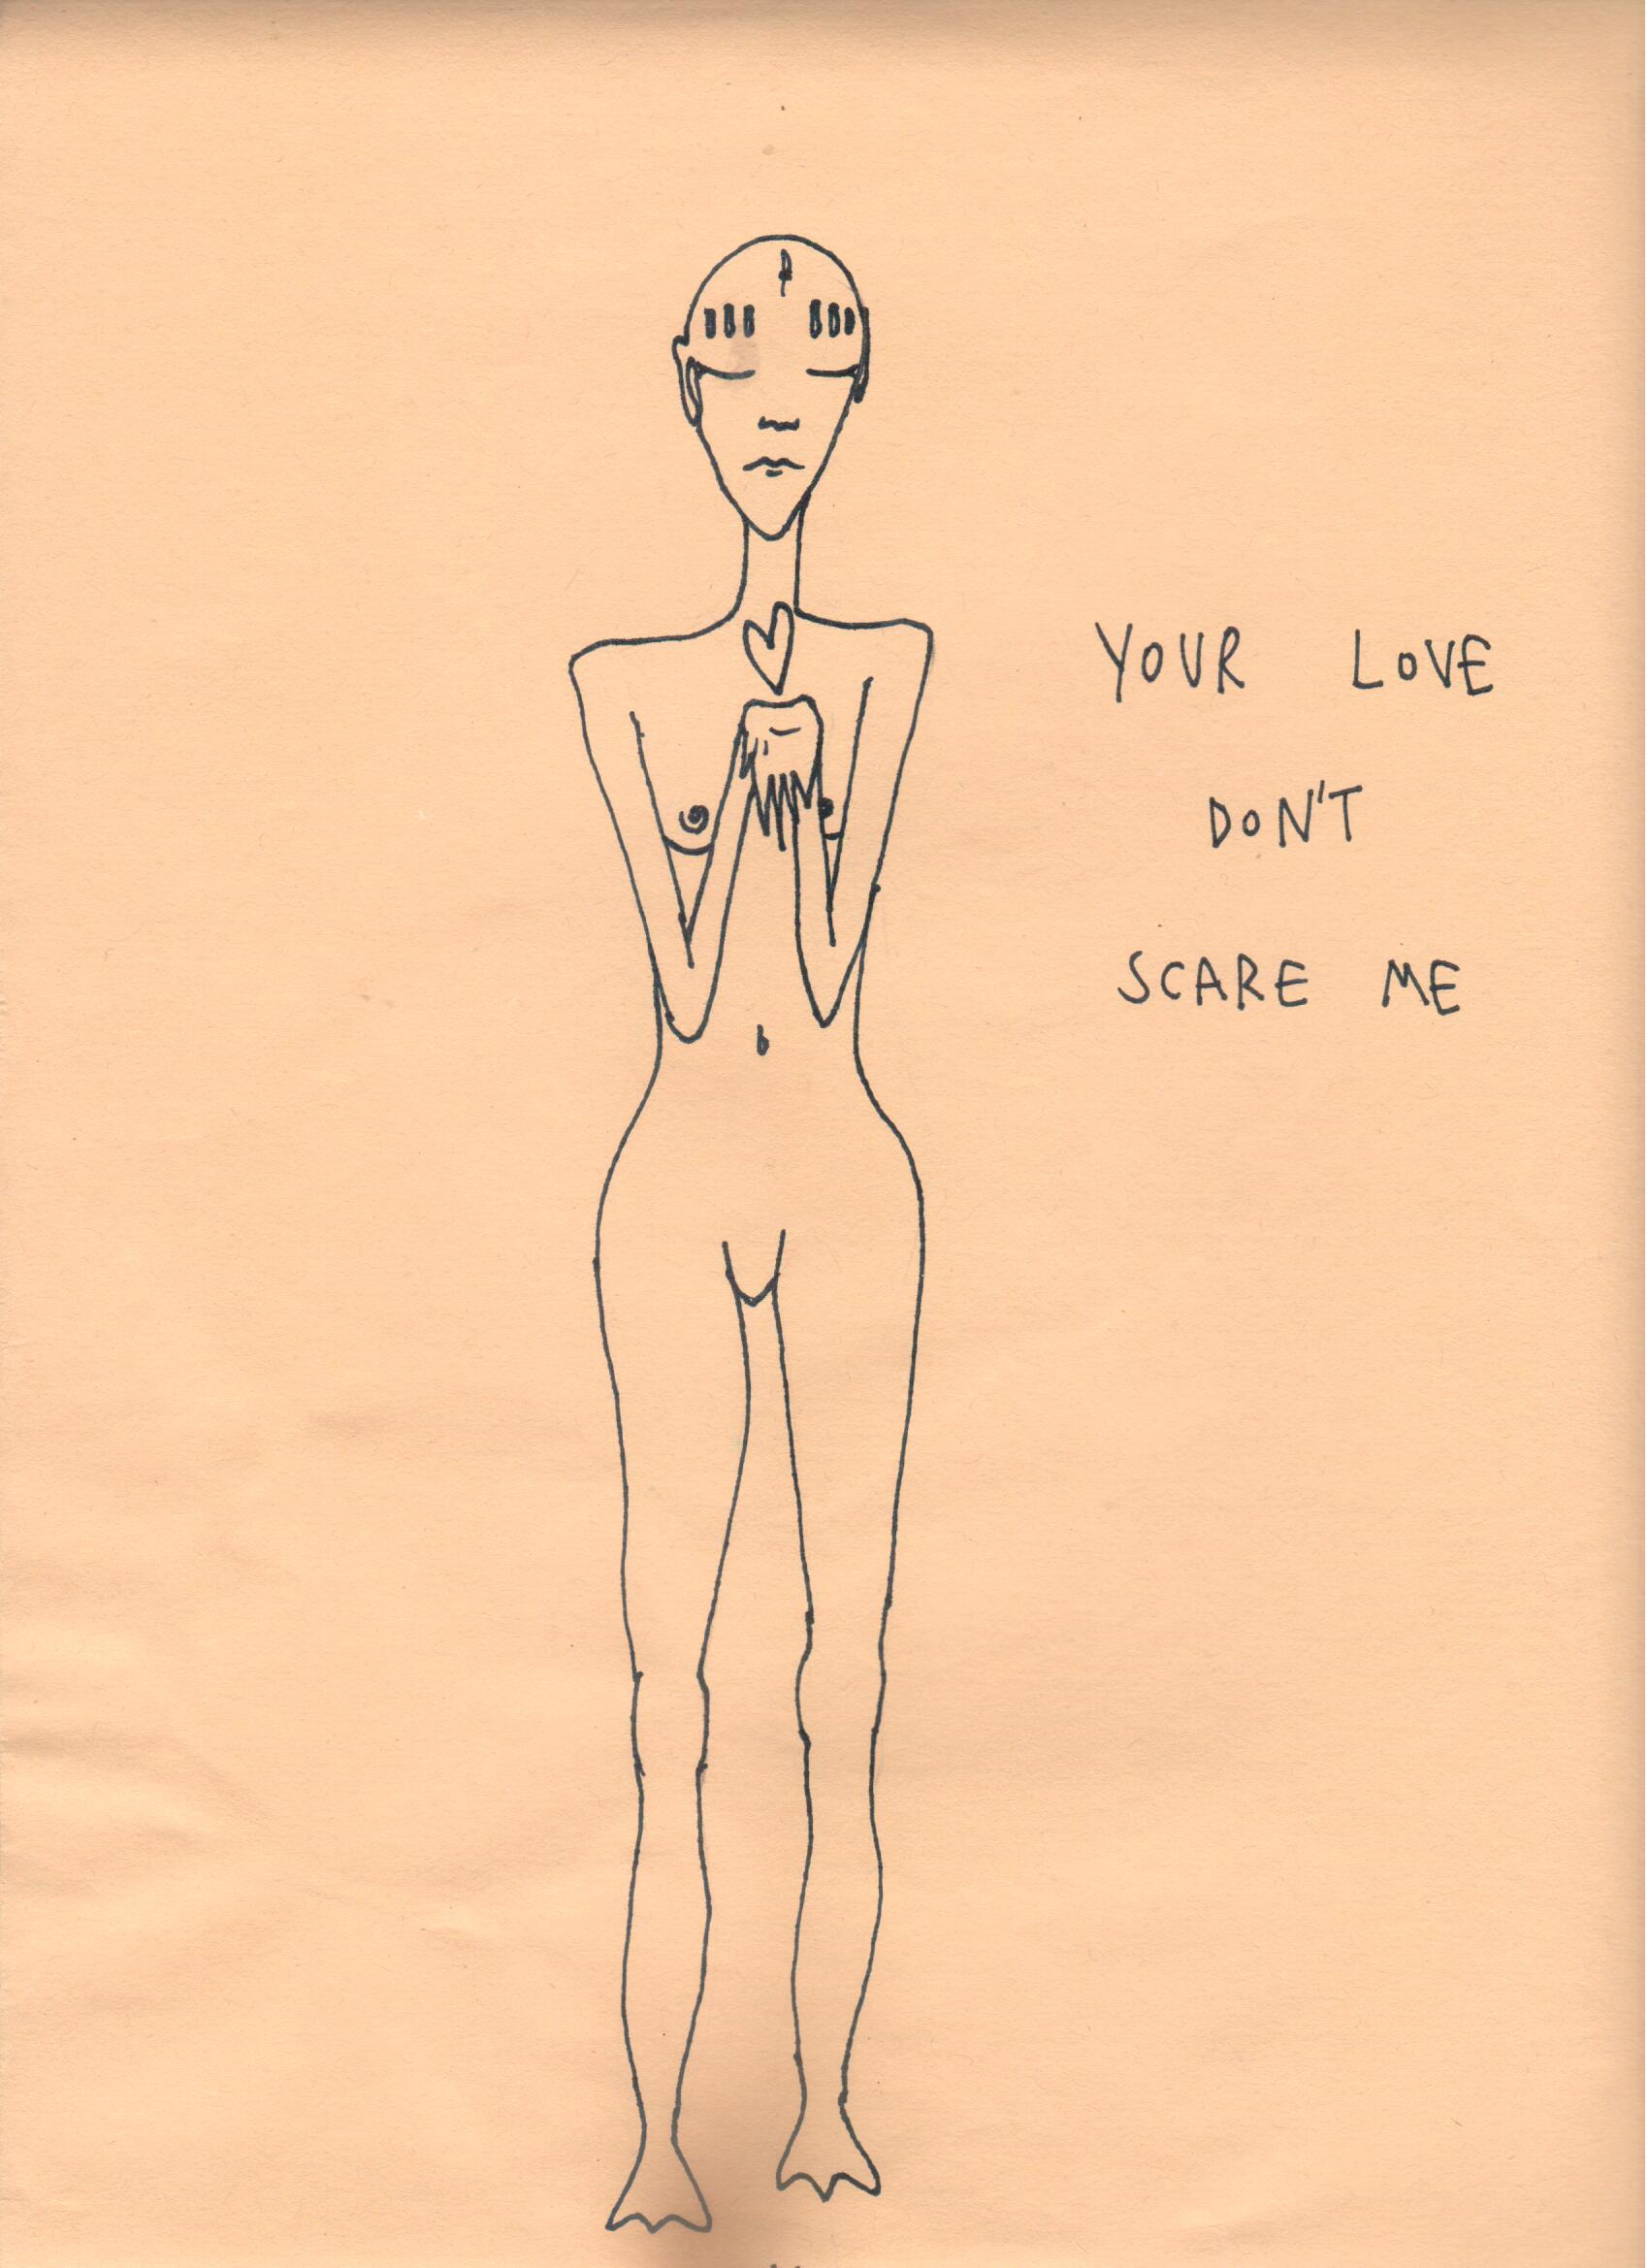 YOUR LOVE
DON'T
SCARE ME